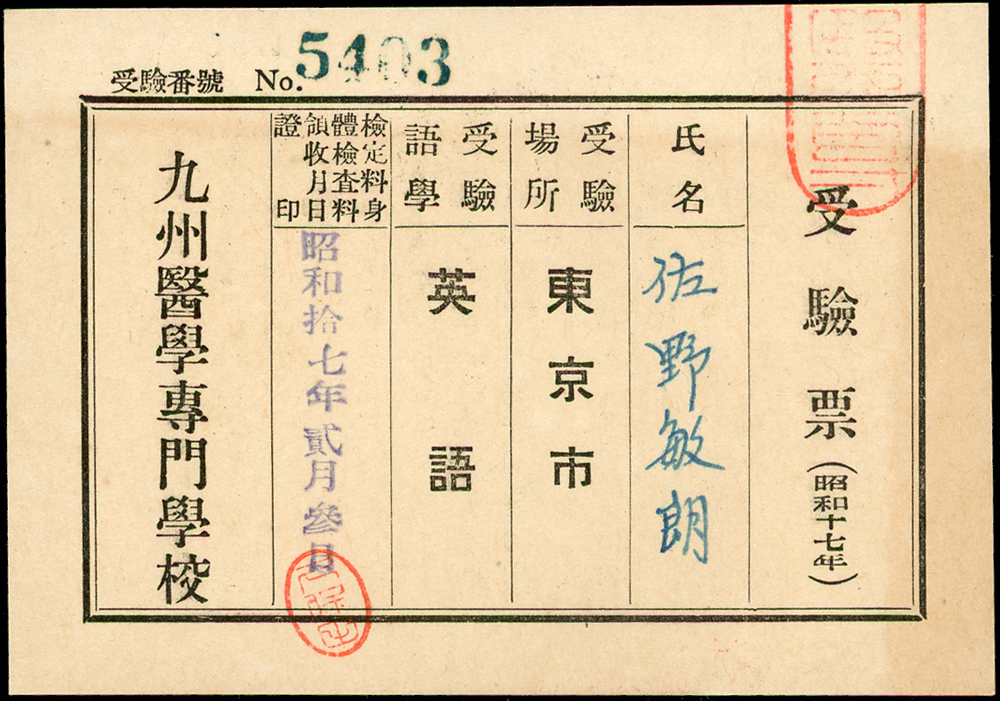 受驗番號 No. 5403
受驗票(昭和十七年)
氏名
佐野敏朗
受驗場所
東京市
受驗語學
英語
檢定料身
體檢查料
領收月日
證印
昭和拾七年貳月參日
九州醫學專門學校